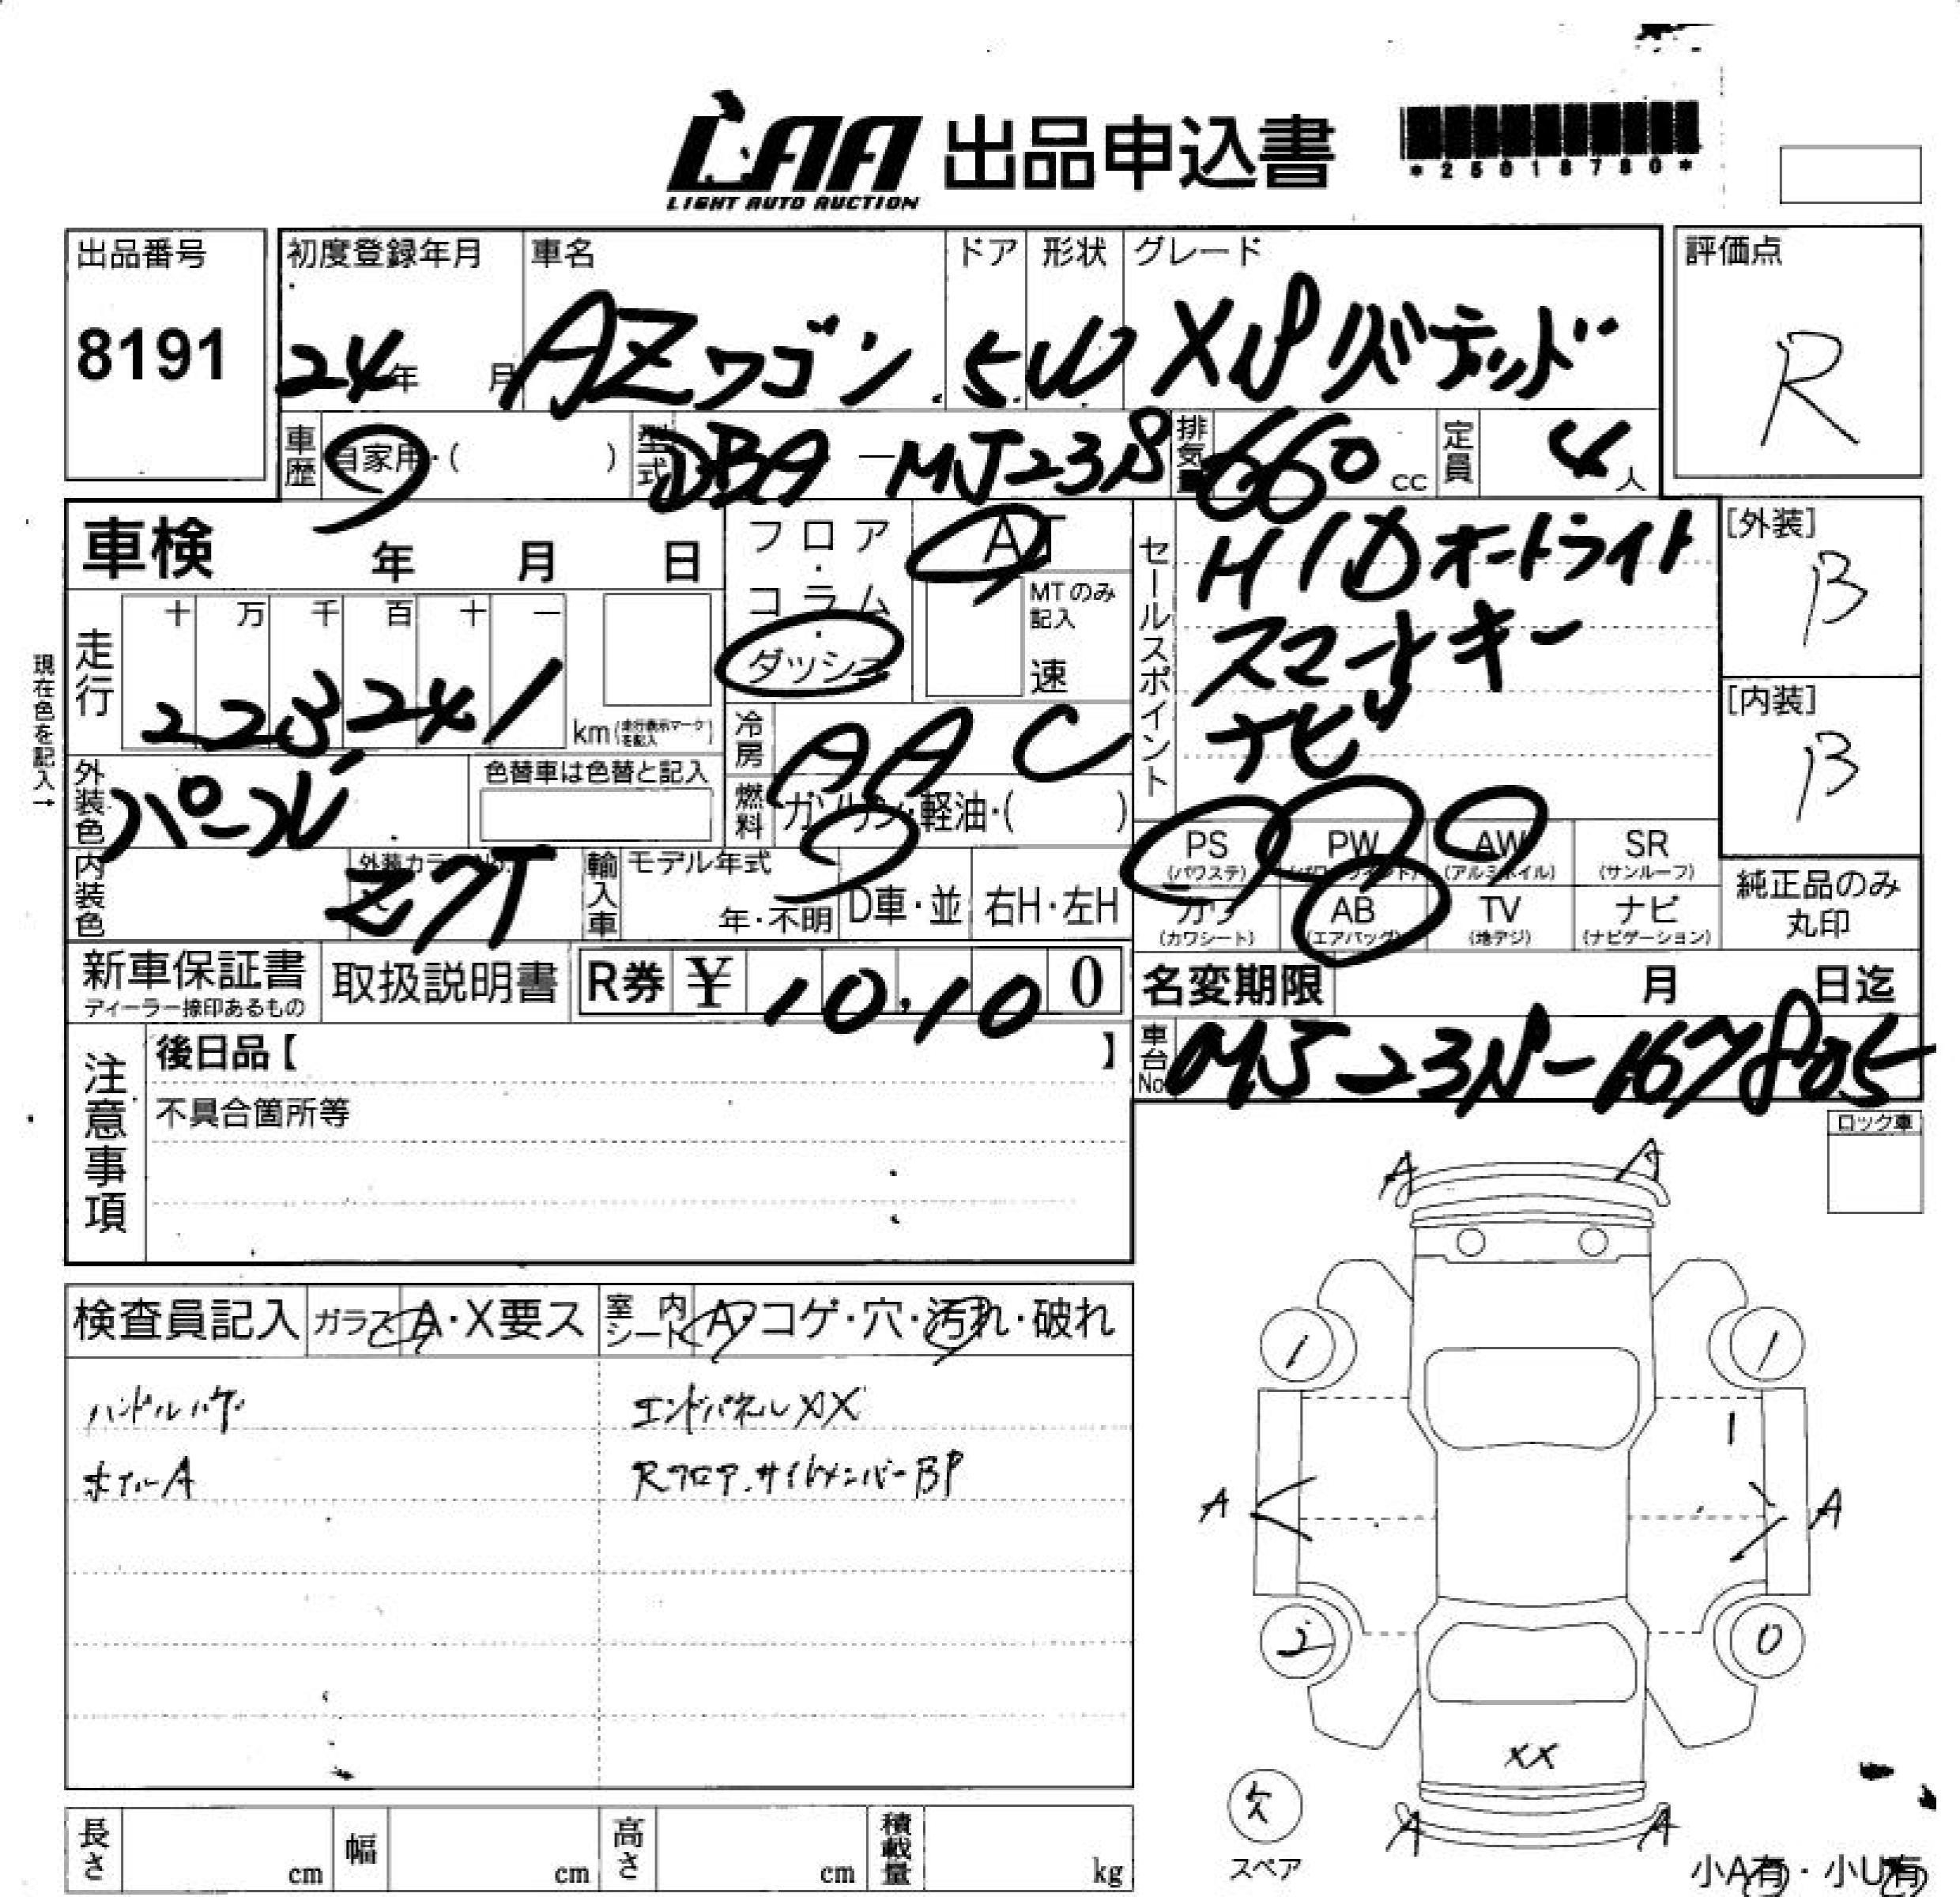 LAA 出品申込書
LIGHT AUTO AUCTION
*25018780*
出品番号
8191
初度登録年月
24年 月
車名
AZワゴン
ドア
5
形状
W
グレード
XSリミテッド
評価点
R
車歴
自家用・( )
型式
DBA-MJ23S
排気量
660 cc
定員
4人
車検 年 月 日
フロア・コラム・ダッシュ
AT
MTのみ記入
速
セールスポイント
HIDオートライト
スマートキー
ナビ
[外装]
B
[内装]
B
現在色を記入→
走行
十 万 千 百 十 一
223,241
km(走行表示マークを記入)
冷房
AAC
外装色
パープル
色替車は色替と記入
燃料
ガソリン・軽油・( )
PS (パワステ)
PW (パワーウインド)
AW (アルミホイル)
SR (サンルーフ)
カワ (カワシート)
AB (エアバッグ)
TV (地デジ)
ナビ (ナビゲーション)
純正品のみ丸印
内装色
外装カラーNo.
Z7T
輸入車
モデル年式
年・不明
D車・並
右H・左H
新車保証書
ディーラー捺印あるもの
取扱説明書
R券 ¥ 10,100
名変期限 月 日迄
注意事項
後日品【 】
車台No.
MJ23S-167805
不具合箇所等
ロック車
検査員記入
ガラス A・X要ス
室内シート A・コゲ・穴・汚れ・破れ
ハンドルハゲ
エンドパネルXX
ホイルA
Rフロア.サイドメンバーBP
A A
1 1
1
A A
2 0
XX
欠
スペア
A A
小A有・小U有
長さ cm
幅 cm
高さ cm
積載量 kg